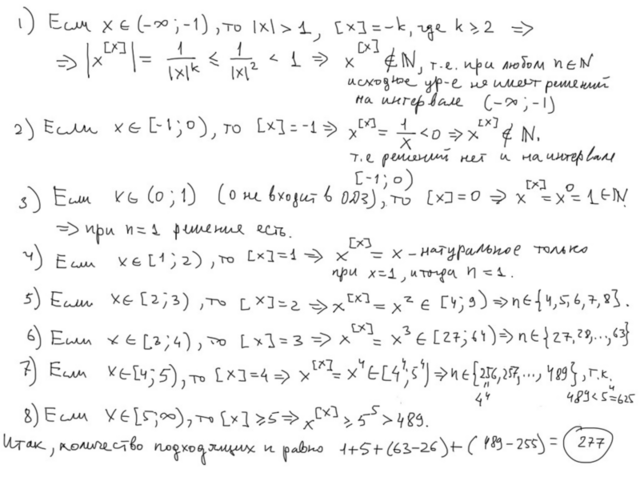 1) Если x ∈ (-∞; -1), то |x| > 1, [x] = -k, где k ≥ 2 ⇒
⇒ |x^[x]| = 1/|x|^k ≤ 1/|x|^2 < 1 ⇒ x^[x] ∉ ℕ, т.е. при любом n ∈ ℕ
исходное ур-е не имеет решений
на интервале (-∞; -1)
2) Если x ∈ [-1; 0), то [x] = -1 ⇒ x^[x] = 1/x < 0 ⇒ x^[x] ∉ ℕ.
т.е решений нет и на интервале
[-1; 0)
3) Если x ∈ (0; 1) (0 не входит в ОДЗ), то [x] = 0 ⇒ x^[x] = x^0 = 1 ∈ ℕ
⇒ при n = 1 решение есть.
4) Если x ∈ [1; 2), то [x] = 1 ⇒ x^[x] = x - натуральное только
при x = 1, и тогда n = 1.
5) Если x ∈ [2; 3), то [x] = 2 ⇒ x^[x] = x^2 ∈ [4; 9) ⇒ n ∈ {4, 5, 6, 7, 8}.
6) Если x ∈ [3; 4), то [x] = 3 ⇒ x^[x] = x^3 ∈ [27; 64) ⇒ n ∈ {27, 28, ..., 63}
7) Если x ∈ [4; 5), то [x] = 4 ⇒ x^[x] = x^4 ∈ [4^4; 5^4) ⇒ n ∈ {256, 257, ..., 489}, т.к.
" 4^4 489 < 5^4 = 625
8) Если x ∈ [5; ∞), то [x] ≥ 5 ⇒ x^[x] ≥ 5^5 > 489.
Итак, количество подходящих n равно 1 + 5 + (63 - 26) + (489 - 255) = 277